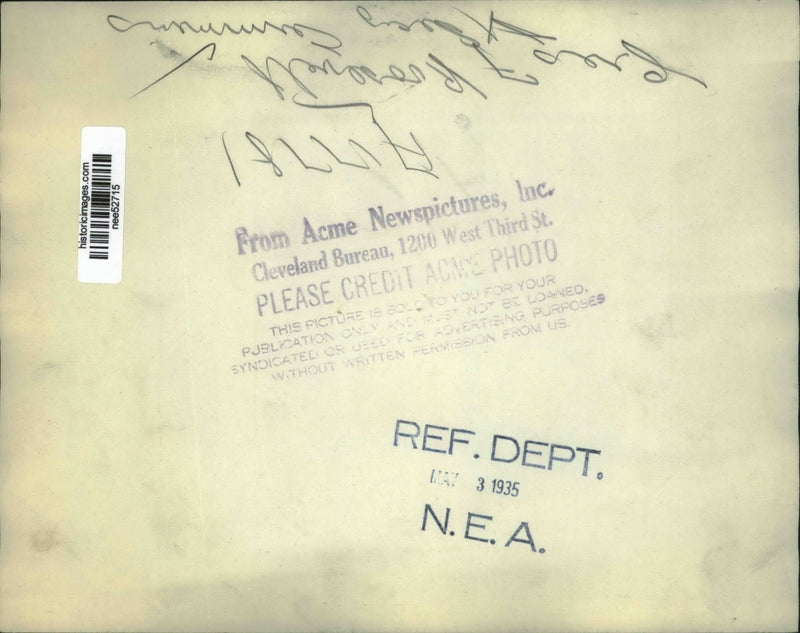 Pres F. Roosevelt
A 17781
From Acme Newspictures, Inc.
Cleveland Bureau, 1200 West Third St.
PLEASE CREDIT ACME PHOTO
THIS PICTURE IS SOLD TO YOU FOR YOUR
PUBLICATION ONLY AND MUST NOT BE LOANED,
SYNDICATED OR USED FOR ADVERTISING PURPOSES
WITHOUT WRITTEN PERMISSION FROM US.
REF. DEPT.
MAY 3 1935
N.E.A.
historicimages.com
nee52715